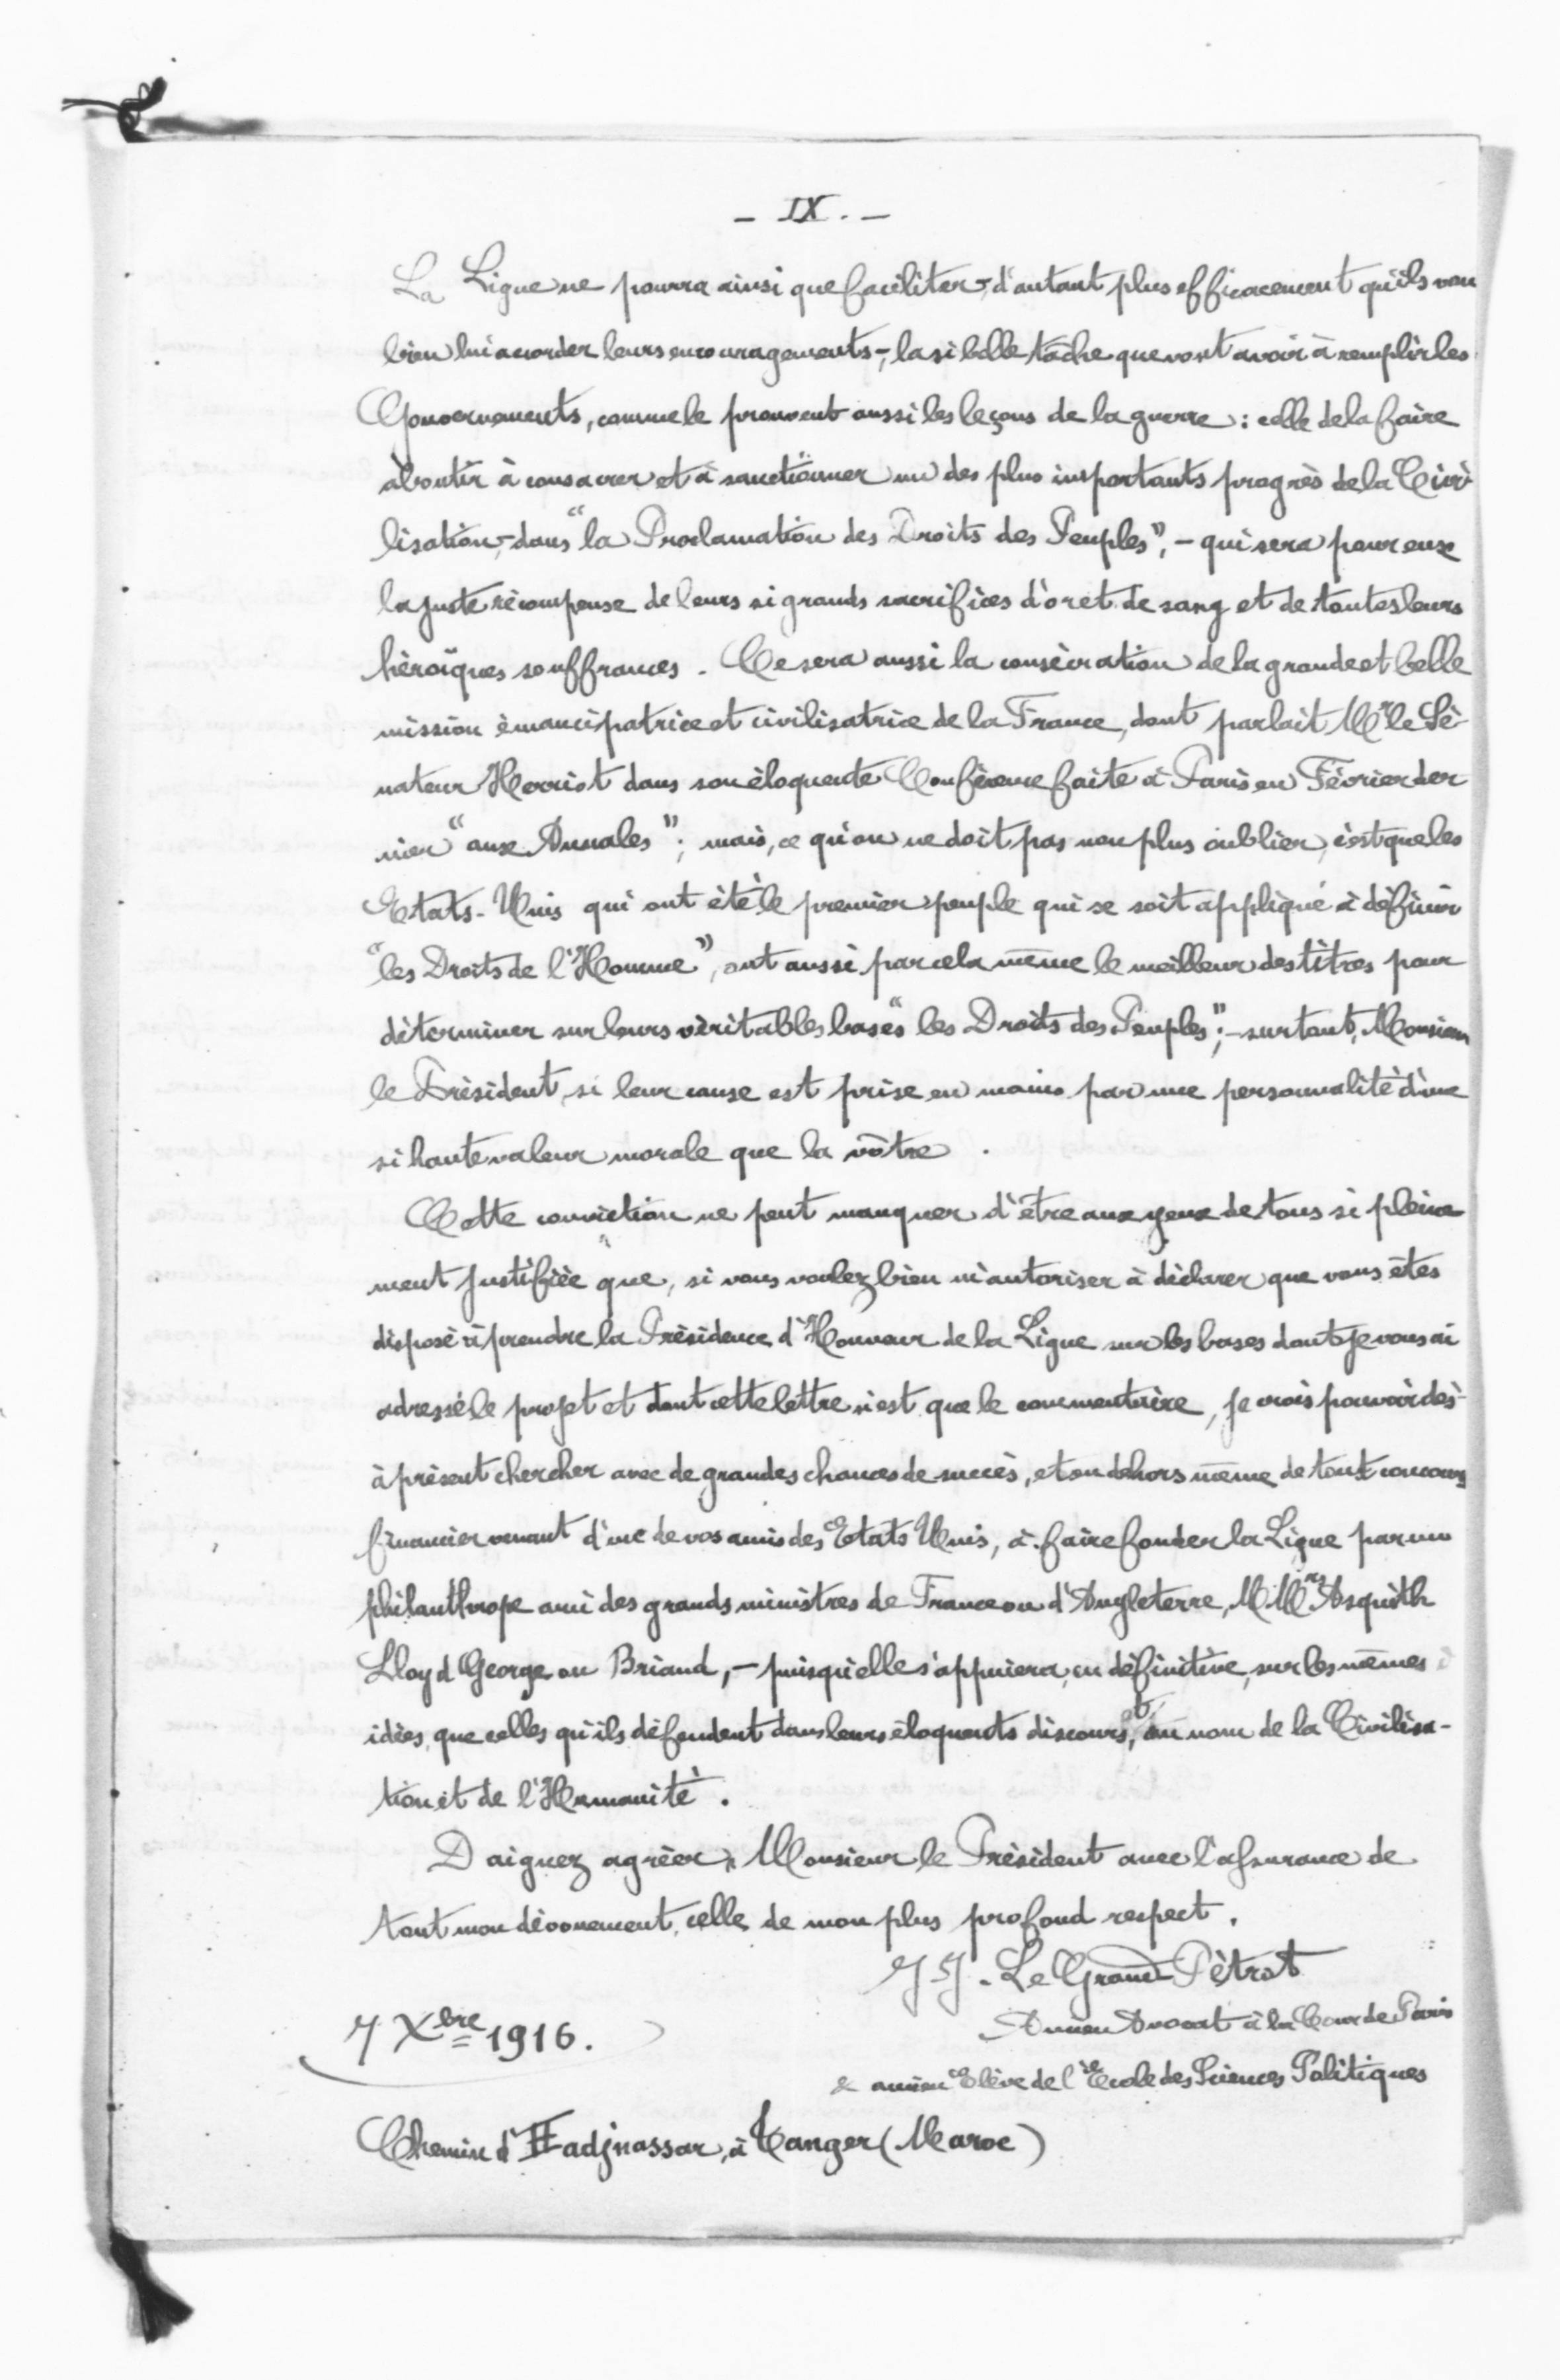 - IX. -
La Ligue ne pourra ainsi que faciliter - d'autant plus efficacement qu'ils vou
bien lui accorder leurs encouragements -, la si belle tâche que vont avoir à remplir les
Gouvernements, comme le prouvent aussi les leçons de la guerre : celle de la faire
aboutir à consacrer et à sanctionner un des plus importants progrès de la Civi-
lisation, - dans "la Proclamation des Droits des Peuples", - qui sera pour eux
la juste récompense de leurs si grands sacrifices d'or et de sang et de toutes leurs
héroïques souffrances. Ce sera aussi la consécration de la grande et belle
mission émancipatrice et civilisatrice de la France, dont parlait Mr le Sé-
nateur Herriot dans son éloquente Conférence faite à Paris en Février der
nier "aux Annales" ; mais, ce qu'on ne doit pas non plus oublier, c'est que les
Etats-Unis qui ont été le premier peuple qui se soit appliqué à définir
"les Droits de l'Homme", ont aussi par cela même le meilleur des titres pour
déterminer sur leurs véritables bases "les Droits des Peuples"; - surtout, Monsieur
le Président, si leur cause est prise en mains par une personnalité d'une
si haute valeur morale que la vôtre.
Cette conviction ne peut manquer d'être aux yeux de tous si pleine
ment justifiée que, si vous voulez bien m'autoriser à déclarer que vous êtes
disposé à prendre la Présidence d'Honneur de la Ligue sur les bases dont je vous ai
adressé le projet et dont cette lettre n'est que le commentaire, je crois pouvoir dès-
à présent chercher avec de grandes chances de succès, et en dehors même de tout concours
financier venant d'un de vos amis des Etats Unis, à faire fonder la Ligue par un
philanthrope ami des grands ministres de France ou d'Angleterre, M Mrs Asquith
Lloyd George ou Briand, - puisqu'elle s'appuiera, en définitive, sur les mêmes
idées que celles qu'ils défendent dans leurs éloquents discours, et au nom de la Civilisa-
tion et de l'Humanité.
Daignez agréer, Monsieur le Président avec l'assurance de
tout mon dévouement, celle de mon plus profond respect.
J. J. Le Grand Pétrot
Ancien Avocat à la Cour de Paris
7 Xbre 1916.
& ancien Elève de l'Ecole des Sciences Politiques
Chemin d'Hadjnassar, à Tanger (Maroc)